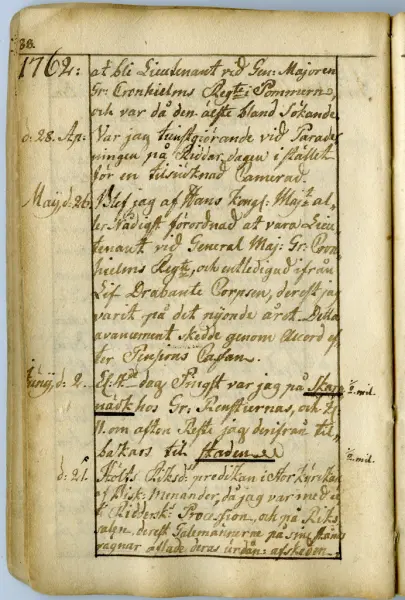 38.
1762: at bli Lieutenant vid Gen: Majoren
Gr: Cronhielms Regte i Pommern,
och var då den älste bland Sökande.
d: 28. Ap: Var jag tienstgiörande vid Parade-
ringen på Riddar dagen i stället
för en tilsiuknad Camerad.
Maij d: 26. Blef jag af Hans Kongl: Maj:t al-
ler Nådigst förordnad at vara Lieu-
tenant vid General Maj: Gr: Cron-
hielms Regte, och entledigad ifrån
Lif Drabante Corpsen, derest jag
varit på det nijonde året. Detta
avancement skedde genom Accord ef-
ter Pensions Casan.
Junij d: 2. dag Pingst var jag på Skarp
näck hos Gr: Renstiernas, och kl: ½ mil.
11. om afton Reste jag derifrån til-
bakars til Staden ½ mil.
d: 21. Hölts Riksd: predikan i Storkyrkan
af Bisk: Menander, då jag var med i
Riddersk: Procession, och på Riks
salen, derest Talemännerne på sine Stånds
vägnar aflade deras underd: afskeden.